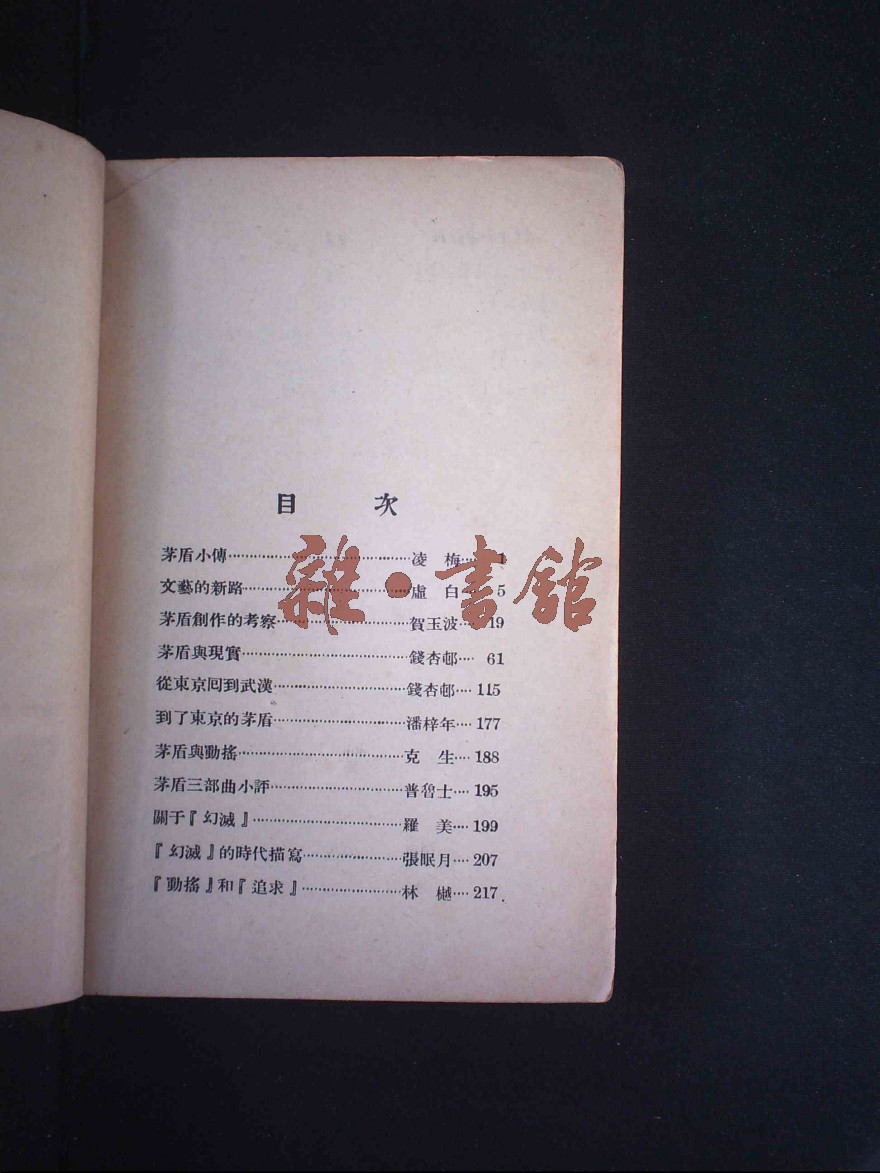 目 次
茅盾小傳⋯⋯凌 梅⋯1
文藝的新路⋯⋯虛 白⋯5
茅盾創作的考察⋯⋯賀玉波⋯19
茅盾與現實⋯⋯錢杏邨⋯61
從東京回到武漢⋯⋯錢杏邨⋯115
到了東京的茅盾⋯⋯潘梓年⋯177
茅盾與動搖⋯⋯克 生⋯188
茅盾三部曲小評⋯⋯普魯士⋯195
關于『幻滅』⋯⋯羅 美⋯199
『幻滅』的時代描寫⋯⋯張眠月⋯207
『動搖』和『追求』⋯⋯林 樾⋯217
雜·書館